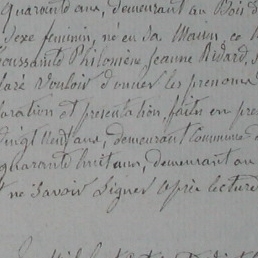 quarante ans, demeurant au Bois
sexe feminin, né en sa Maison, ce
Toussainte Philomène Jeanne Ridard,
laré Vouloir donner les prenoms
aration et presentation, faits en pre
vingt neuf ans, demeurant Commune d
quarante huit ans, demeurant au
ne Savoir Signer après lecture